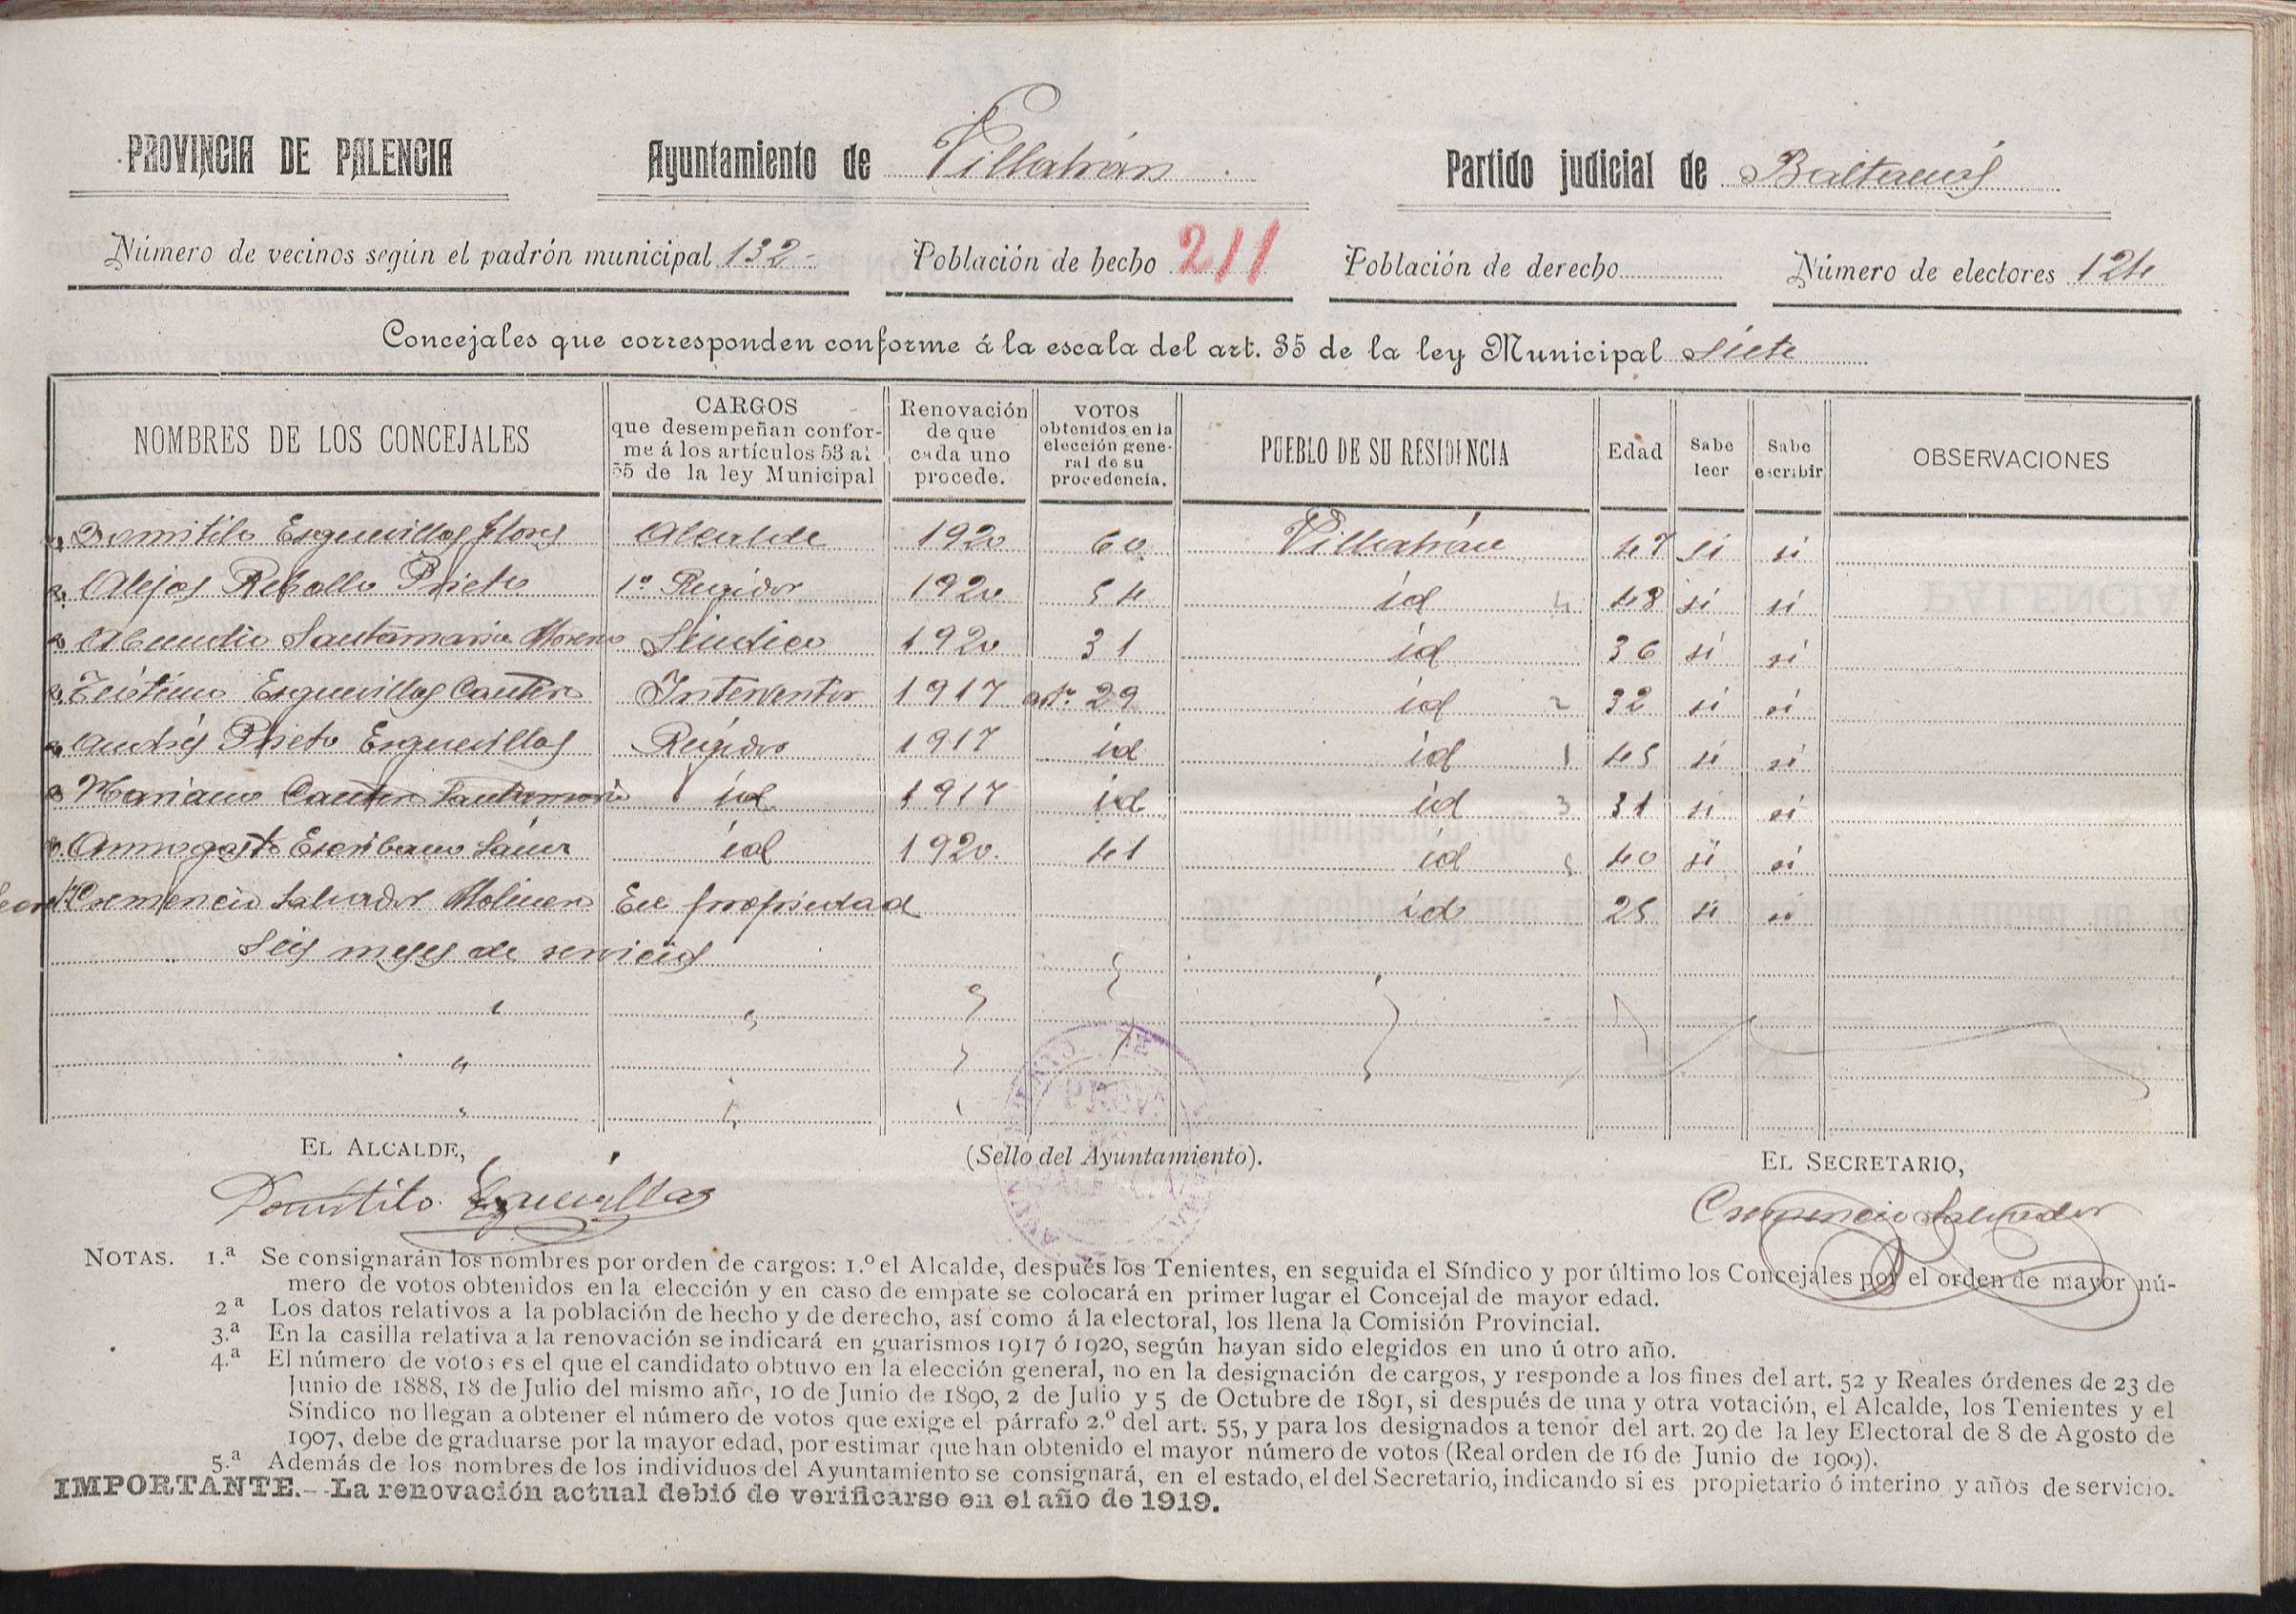 PROVINCIA DE PALENCIA Ayuntamiento de Villahán Partido judicial de Baltanás
Número de vecinos según el padrón municipal 132 Población de hecho 211 Población de derecho Número de electores 124
Concejales que corresponden conforme á la escala del art. 35 de la ley Municipal siete
NOMBRES DE LOS CONCEJALES
CARGOS
que desempeñan confor-
me á los artículos 53 al
55 de la ley Municipal
Renovación
de que
cada uno
procede.
VOTOS
obtenidos en la
elección gene-
ral de su
procedencia.
PUEBLO DE SU RESIDENCIA
Edad
Sabe
leer
Sabe
escribir
OBSERVACIONES
Domitilo Esguevillas Flores Alcalde 1920 60 Villahán 47 si si
Alejos Rebollo Prieto 1º Regidor 1920 54 id 4 48 si si
Abundio Santamaria Moreno Síndico 1920 31 id 36 si si
Esguevillas Cantero Interventor 1917 artº 29 id 2 32 si si
Andrés Prieto Esguevillas Regidor 1917 id id 1 45 si si
Mariano Cantero Santamaria id 1917 id id 3 31 si si
Escribano id 1920 41 id 5 40 si si
Cremencio Salvador Molinero En propiedad id 25 si si
Seis meses de servicios
EL ALCALDE, (Sello del Ayuntamiento). EL SECRETARIO,
Domitilo Esguevillas Cremencio Salvador
NOTAS. 1.ª Se consignarán los nombres por orden de cargos: 1.º el Alcalde, después los Tenientes, en seguida el Síndico y por último los Concejales por el orden de mayor nú-
mero de votos obtenidos en la elección y en caso de empate se colocará en primer lugar el Concejal de mayor edad.
2ª Los datos relativos a la población de hecho y de derecho, así como á la electoral, los llena la Comisión Provincial.
3.ª En la casilla relativa a la renovación se indicará en guarismos 1917 ó 1920, según hayan sido elegidos en uno ú otro año.
4.ª El número de votos es el que el candidato obtuvo en la elección general, no en la designación de cargos, y responde a los fines del art. 52 y Reales órdenes de 23 de
Junio de 1888, 18 de Julio del mismo año, 10 de Junio de 1890, 2 de Julio y 5 de Octubre de 1891, si después de una y otra votación, el Alcalde, los Tenientes y el
Síndico no llegan a obtener el número de votos que exige el párrafo 2.º del art. 55, y para los designados a tenor del art. 29 de la ley Electoral de 8 de Agosto de
1907, debe de graduarse por la mayor edad, por estimar que han obtenido el mayor número de votos (Real orden de 16 de Junio de 1909).
5.ª Además de los nombres de los individuos del Ayuntamiento se consignará, en el estado, el del Secretario, indicando si es propietario ó interino y años de servicio.
IMPORTANTE.—La renovación actual debió de verificarse en el año de 1919.